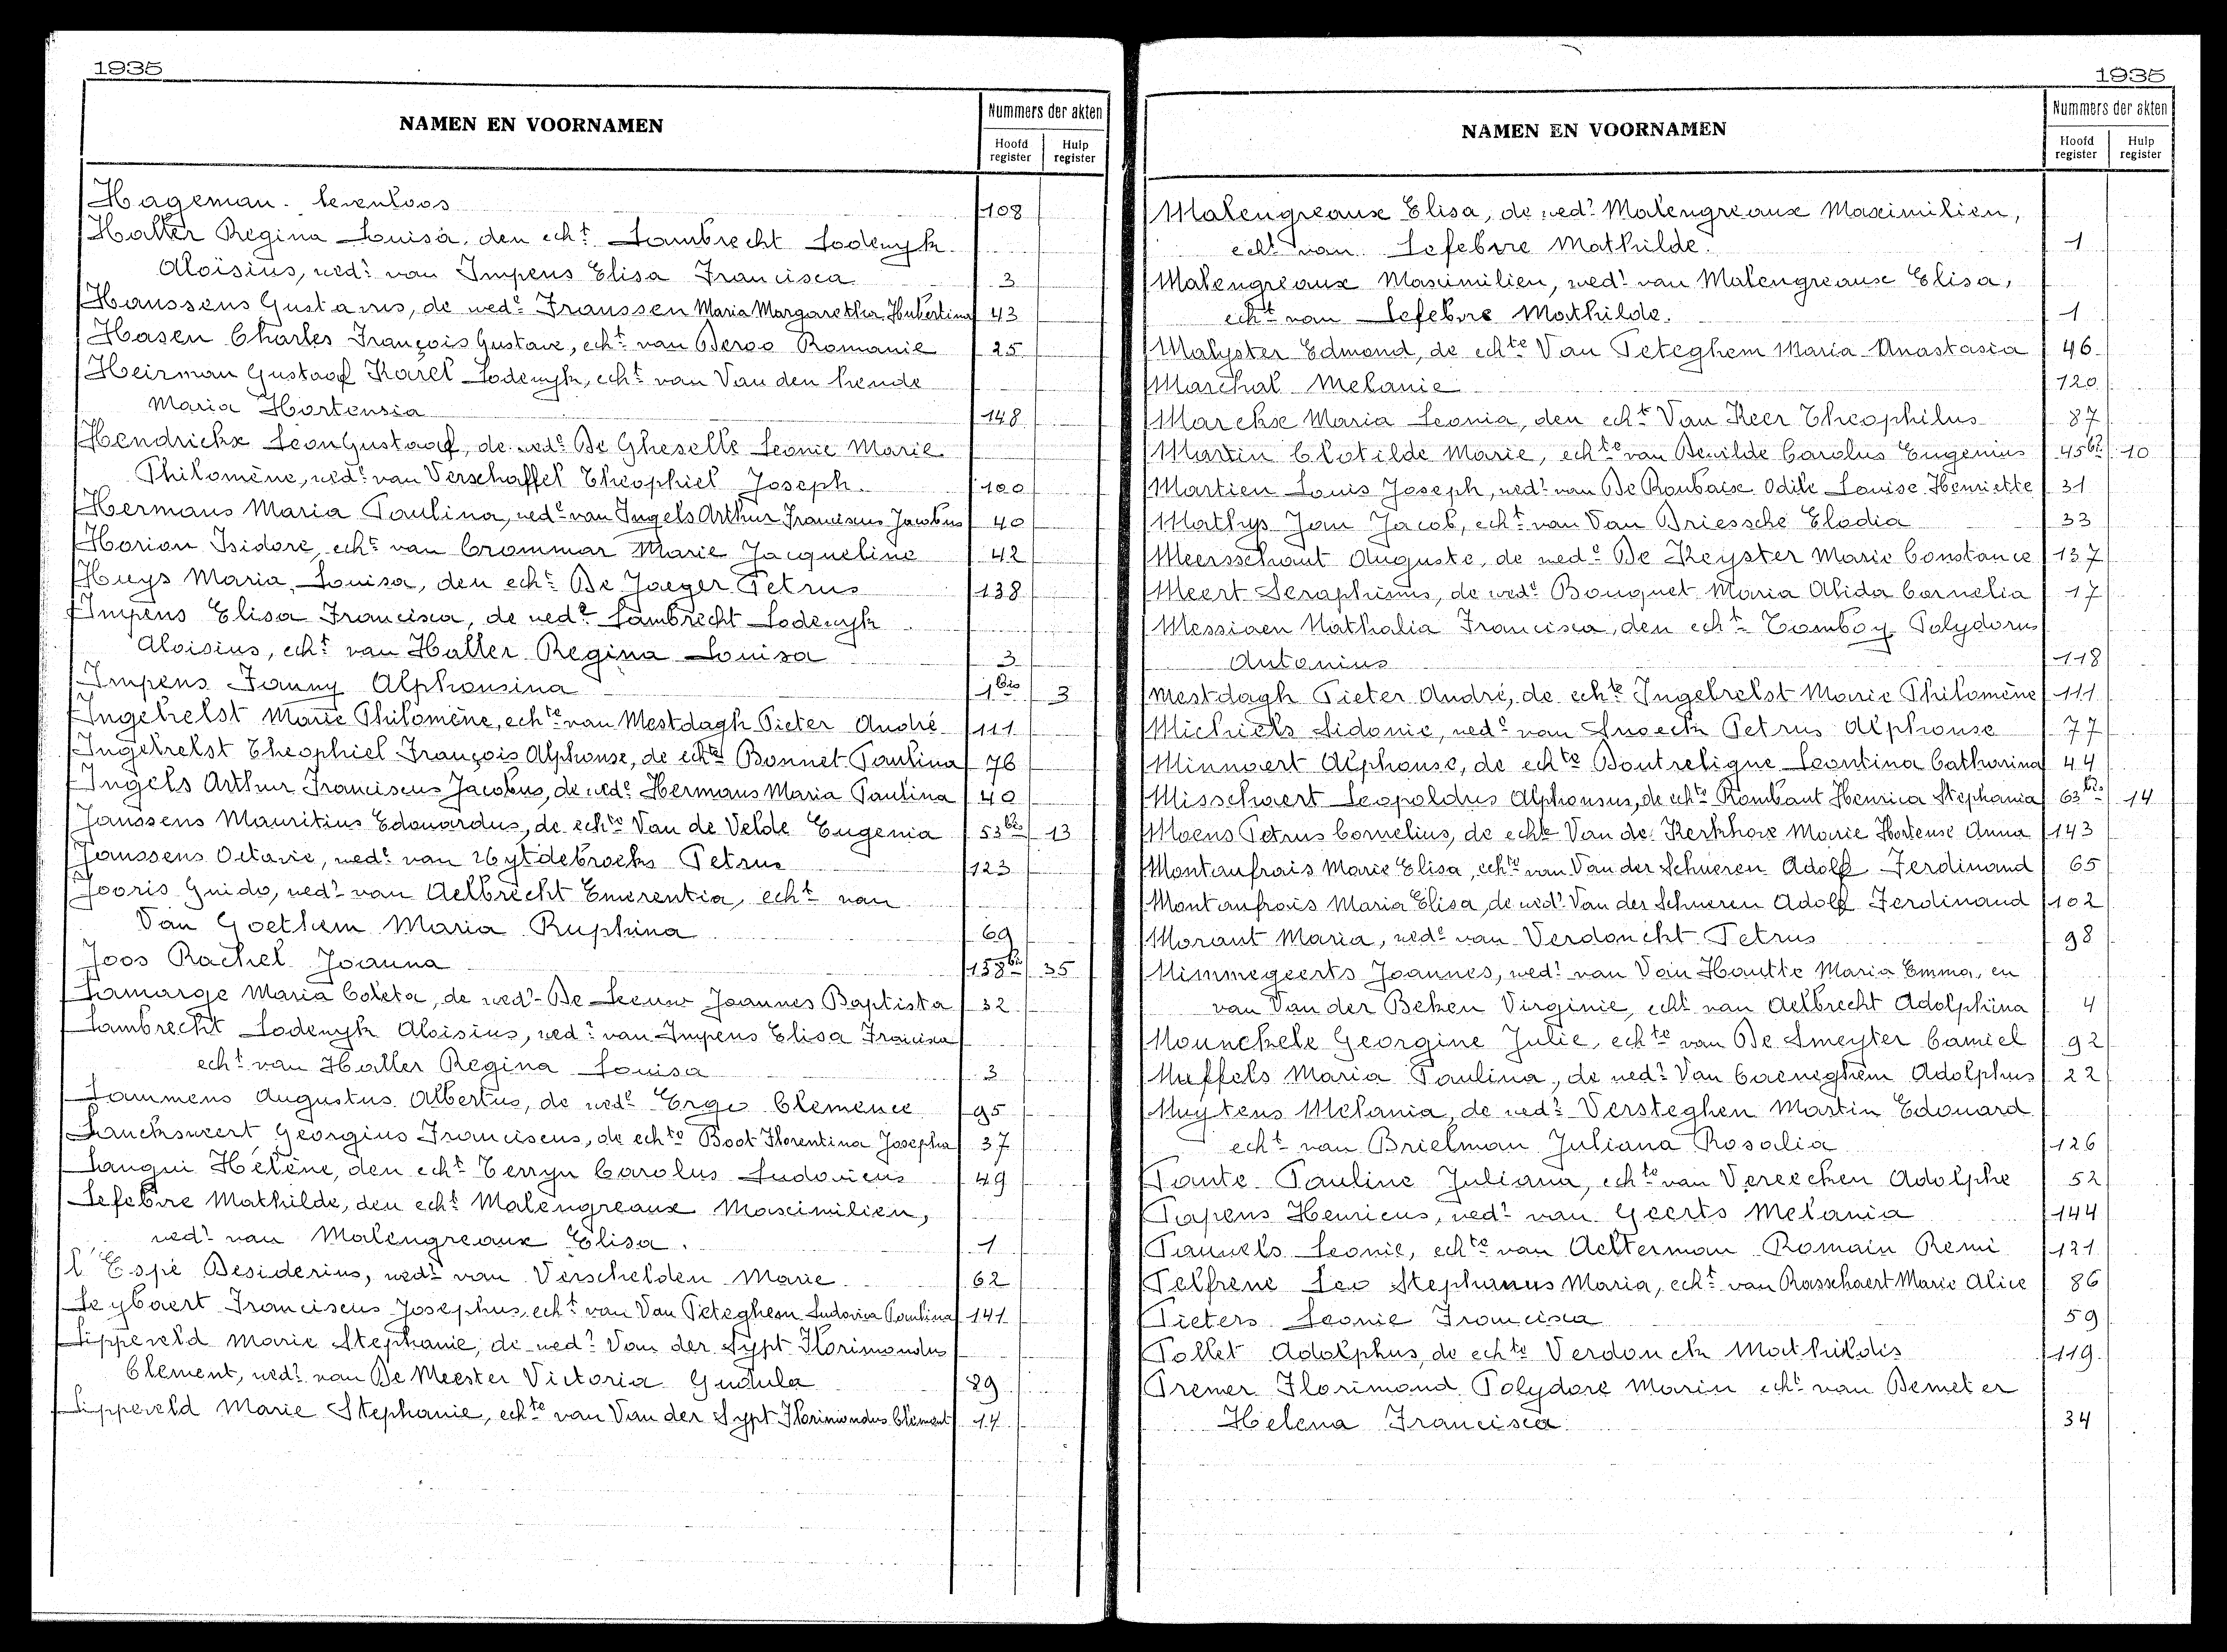 1935
NAMEN EN VOORNAMEN
Nummers der akten
Hoofd register
Hulp register
Hageman. levenloos 108
Haller Regina Louisa, den echt. Lambrecht Lodewyk
Aloïsius, wedr. van Impens Elisa Francisca 3
Haussens Gustavus, de wede. Franssen Maria Margaretha Hubertina 43
Hasen Charles François Gustave, echt. van Deroo Romanie 25
Heirman Gustaaf Karel Lodewyk, echt. van Van den hende
Maria Hortensia 148
Hendrickx Leon Gustaaf, de wede. De Gheselle Leonie Marie
Philomène, wede. van Verschaffel Theophiel Joseph 100
Hermans Maria Paulina, wede. van Ingels Arthur Franciscus Jacobus 40
Horion Isidore, echt. van Crommar Marie Jacqueline 42
Huys Maria Louisa, den echt. De Jaeger Petrus 138
Impens Elisa Francisca, de wedr. Lambrecht Lodewyk
Aloisius, echt. van Haller Regina Louisa 3
Impens Fanny Alphonsina 1bis 3
Ingelrelst Marie Philomène, echte van Mestdagh Pieter André 111
Ingelrelst Theophiel François Alphonse, de echte Bonnet Paulina 76
Ingels Arthur Franciscus Jacobus, de wede. Hermans Maria Paulina 40
Janssens Mauritius Edouardus, de echte Van de Velde Eugenia 53bis 13
Janssens Octavie, wede. van Uytdebroeks Petrus 123
Jooris Guido, wedr. van Aelbrecht Emerentia, echt. van
Van Goethem Maria Ruphina 69
Joos Rachel Joanna 158bis 35
Lamarge Maria Coleta, de wedr. De Leeuw Joannes Baptista 32
Lambrecht Lodewyk Aloisius, wedr. van Impens Elisa Francisca
echt. van Haller Regina Louisa 3
Lammens Augustus Albertus, de wede. Ergo Clemence 95
Lancksweert Georgius Franciscus, de echte Boot Florentina Josepha 37
Langui Hélène, den echt. Terryn Carolus Ludovicus 49
Lefebvre Mathilde, den echt. Malengreaux Maximilien,
wedr. van Malengreaux Elisa. 1
l'Espé Desiderius, wedr. van Verschelden Marie 62
Leybaert Franciscus Josephus, echt. van Van Peteghem Ludovica Paulina 141
Lippeveld Marie Stephanie, de wedr. Van der Sypt Florimondus
Clement, wedr. van De Meester Victoria Gudula 89
Lippeveld Marie Stephanie, echte van Van der Sypt Florimondus Clement 14
1935
NAMEN EN VOORNAMEN
Nummers der akten
Hoofd register
Hulp register
Malengreaux Elisa, de wedr. Malengreaux Maximilien,
echt. van Lefebvre Mathilde. 1
Malengreaux Maximilien, wedr. van Malengreaux Elisa,
echt. van Lefebvre Mathilde. 1
Malyster Edmond, de echte Van Peteghem Maria Anastasia 46
Marchal Melanie 120
Marckx Maria Leonia, den echt. Van Keer Theophilus 87
Martin Clotilde Marie, echte van Dewilde Carolus Eugenius 45bis 10
Martien Louis Joseph, wedr. van De Roubaix Odile Louise Henriette 31
Mathys Jan Jacob, echt. van Van Driessche Elodia 33
Meersschaut Auguste, de wede. De Keyster Marie Constance 137
Meert Seraphinus, de wede. Bouquet Maria Alida Cornelia 17
Messiaen Nathalia Francisca, den echt. Tomboy Polydorus
Antonius 118
Mestdagh Pieter André, de echte Ingelrelst Marie Philomène 111
Michiels Sidonie, wede. van Snoeck Petrus Alphonse 77
Minnaert Alphonse, de echte Doutreligne Leontina Catharina 44
Misschaert Leopoldus Alphonsus, de echte Rombaut Henrica Stephania 63bis 14
Moens Petrus Cornelius, de echte Van de Kerkhove Marie Hortense Anna 143
Montaufrais Marie Elisa, echte van Van der Schueren Adolf Ferdinand 65
Montaufrais Maria Elisa, de wedr. Van der Schueren Adolf Ferdinand 102
Morant Maria, wede. van Verdonckt Petrus 98
Mimmegeerts Joannes, wedr. van Van Houtte Maria Emma, en
van Van der Beken Virginie, echt. van Aelbrecht Adolphina 4
Mounckele Georgine Julie, echte van De Smeyter Camiel 92
Muffels Maria Paulina, de wedr. Van Caeneghem Adolphus 22
Muytens Melania, de wedr. Versteghen Martin Edouard
echt. van Brielman Juliana Rosalia 126
Pante Pauline Juliana, echte van Vereecken Adolphe 52
Papens Henricus, wedr. van Geerts Melania 144
Pauwels Leonie, echte van Aelterman Romain Remi 121
Pelfrene Leo Stephanus Maria, echt. van Rasschaert Marie Alice 86
Pieters Leonie Francisca 59
Pollet Adolphus, de echte Verdonck Mathildis 119
Premer Florimond Polydore Marin echt. van Demeter
Helena Francisca 34